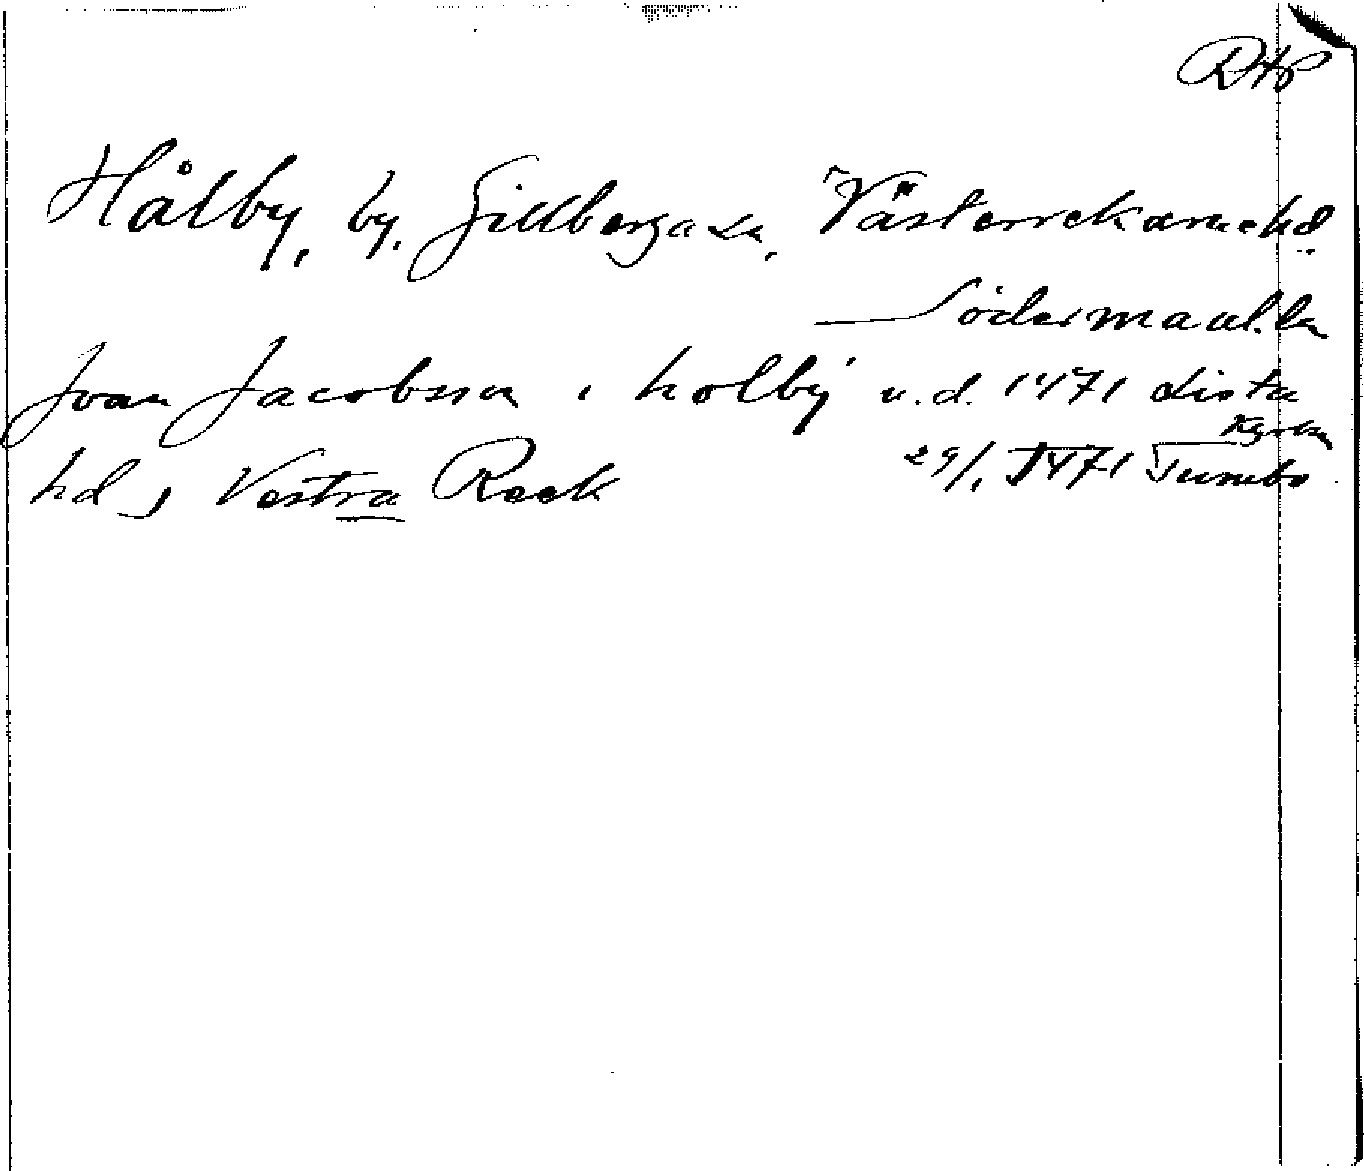 Hålby, by, Gillberga sn, Västerrekarnehd.
Södermanl. län
Joan Jacobsson i holby u.d. 1471 Lista
kyrka
hd, Vestra Reek 29/1 1471 Tumbo